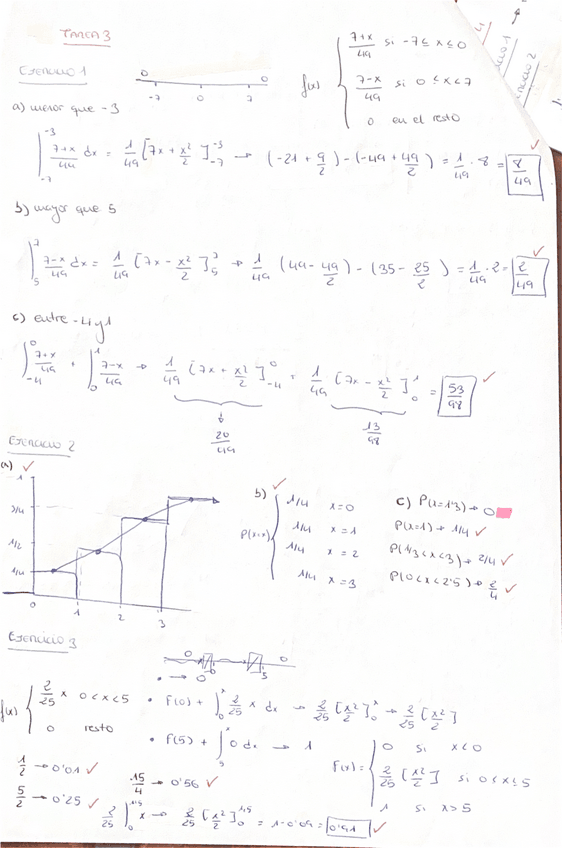 TAREA 3
EJERCICIO 1
0 0
-7 0 7
f(x) { (7+x)/49 si -7 ≤ x ≤ 0
(7-x)/49 si 0 ≤ x < 7
0 en el resto
a) menor que -3
∫_{-7}^{-3} (7+x)/49 dx = 1/49 [7x + x²/2]_{-7}^{-3} → (-21 + 9/2) - (-49 + 49/2) = 1/49 · 8 = 8/49 ✓
b) mayor que 5
∫_5^7 (7-x)/49 dx = 1/49 [7x - x²/2]_5^7 → 1/49 (49 - 49/2) - (35 - 25/2) = 1/49 · 2 = 2/49 ✓
c) entre -4 y 1
∫_{-4}^0 (7+x)/49 + ∫_0^1 (7-x)/49 → 1/49 [7x + x²/2]_{-4}^0 = 1/49 [7x - x²/2]_0^1 = 53/98 ✓
20/49 13/98
EJERCICIO 2
a) ✓
1
3/4
1/2
1/4
0 1 2 3
b) ✓
P(X=x) { 1/4 x=0
1/4 x=1
1/4 x=2
1/4 x=3
c) P(x=1'3) → 0
P(x=1) → 1/4 ✓
P(1/3<x<3) → 2/4 ✓
P(0<x<2'5) → 2/4 ✓
EJERCICIO 3
0 0
0 5
f(x) { 2/25 x 0<x<5
0 resto
• F(0) + ∫_0^x 2/25 x dx → 2/25 [x²/2]_0^x → 2/25 [x²/2]
• F(5) + ∫_5^x 0 dx → 1
F(x) = { 0 si x<0
2/25 [x²/2] si 0<x≤5
1 si x>5
1/2 → 0'01 ✓
15/4 → 0'56 ✓
5/2 → 0'25 ✓
2/25 ∫_0^{1,5} x → 2/25 [x²/2]_0^{1,5} = 1-0'09 = 0'91 ✓